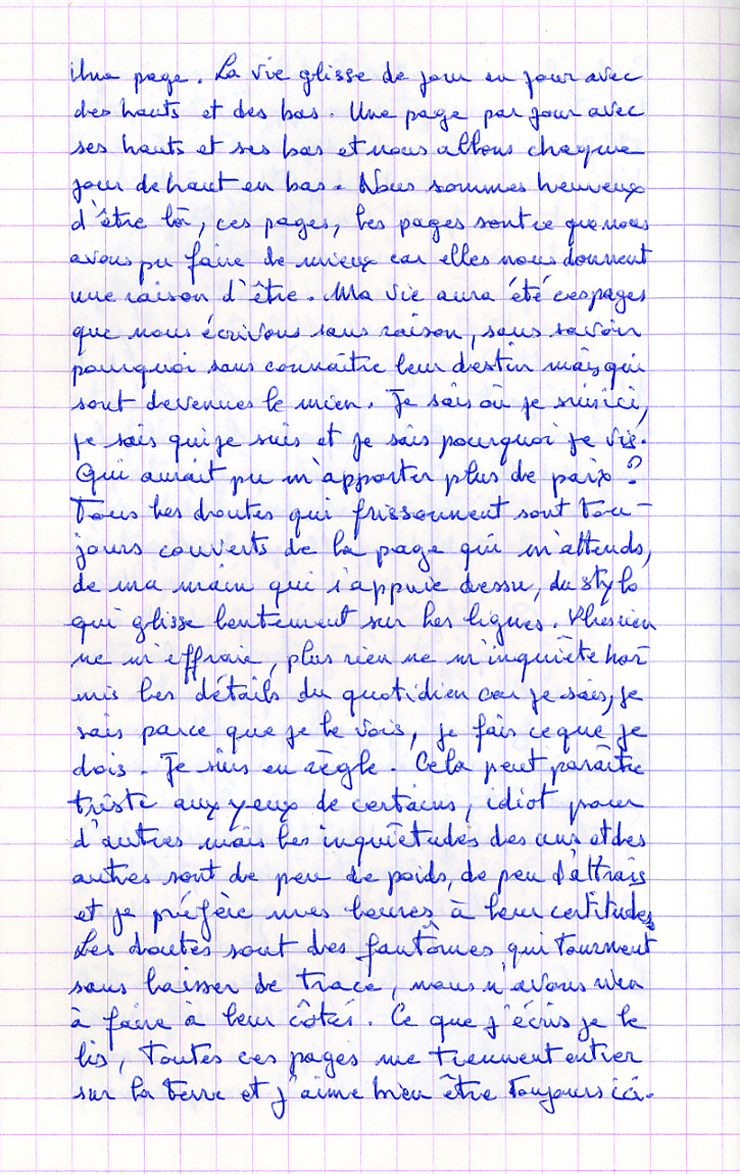 Une page. La vie glisse de jour en jour avec
des hauts et des bas. Une page par jour avec
ses hauts et ses bas et nous allons chaque
jour de haut en bas. Nous sommes heureux
d'être là, ces pages, les pages sont ce que nous
avons pu faire de mieux car elles nous donnent
une raison d'être. Ma vie aura été ces pages
que nous écrivons sans raison, sans savoir
pourquoi sans connaître leur destin mais qui
sont devenues le mien. Je sais où je suis ici,
je sais qui je suis et je sais pourquoi je vis.
Qui aurait pu m'apporter plus de paix ?
Tous les doutes qui frissonnent sont tou-
jours couverts de la page qui m'attends,
de ma main qui s'appuie dessu, du stylo
qui glisse lentement sur les lignes. Plus rien
ne m'effraie, plus rien ne m'inquiète hor
mis les détails du quotidien car je sais, je
sais parce que je le vois, je fais ce que je
dois. Je suis en règle. Cela peut paraître
triste aux yeux de certains, idiot pour
d'autres mais les inquiétudes des uns et des
autres sont de peu de poids, de peu d'attraits
et je préfère mes heures à leur certitudes.
Les doutes sont des fantômes qui tournent
sans laisser de trace, nous n'avons rien
à faire à leur côtés. Ce que j'écris je le
lis, toutes ces pages me tiennent entier
sur la terre et j'aime bien être toujours ici.